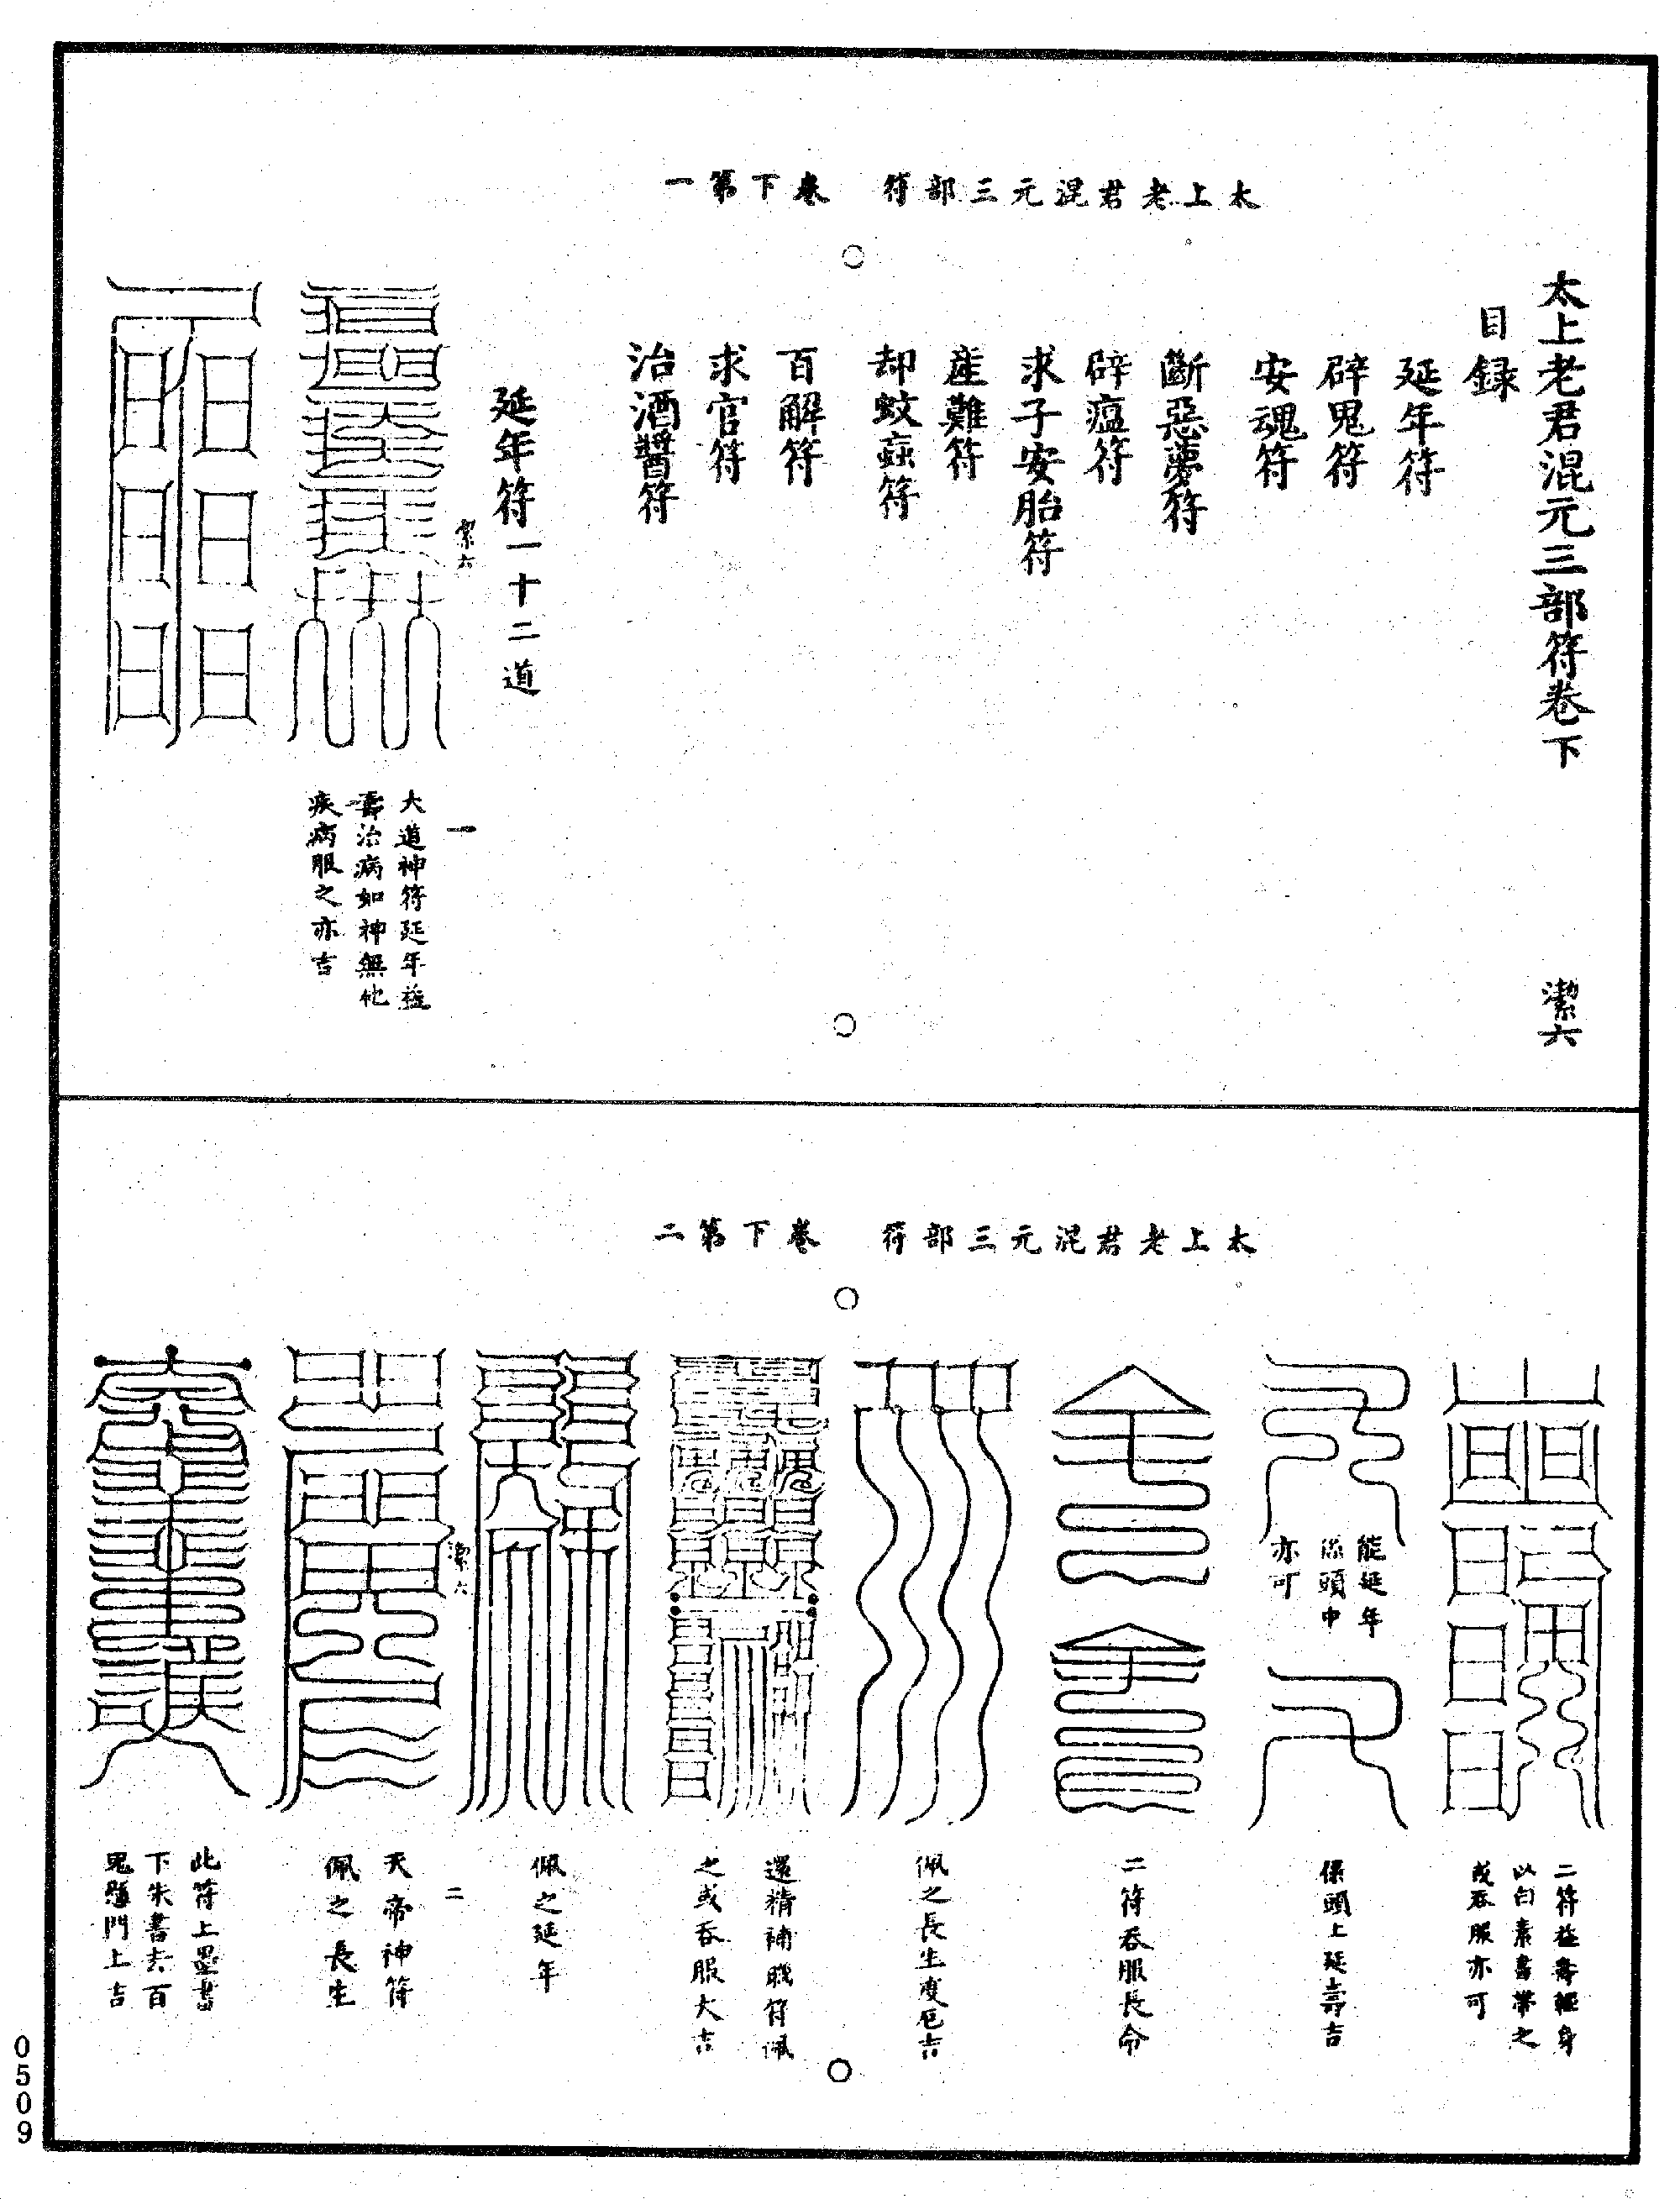 太上老君混元三部符　卷下第一
太上老君混元三部符卷下　潔六
目錄
延年符
辟鬼符
安魂符
斷惡夢符
辟瘟符
求子安胎符
産難符
却蚊蟲符
百解符
求官符
治酒醬符
延年符一十二道
潔六
一
大道神符延年益
壽治病如神無他
疾病服之亦吉
太上老君混元三部符　卷下第二
二符益壽輕身
以白素書帶之
或吞服亦可
能延年
係頭中
亦可
係頭上延壽吉
二符吞服長命
佩之長生度厄吉
還精補職符佩
之或吞服大吉
佩之延年
潔六
二
天帝神符
佩之長生
此符上墨書
下朱書去百
鬼懸門上吉
0509